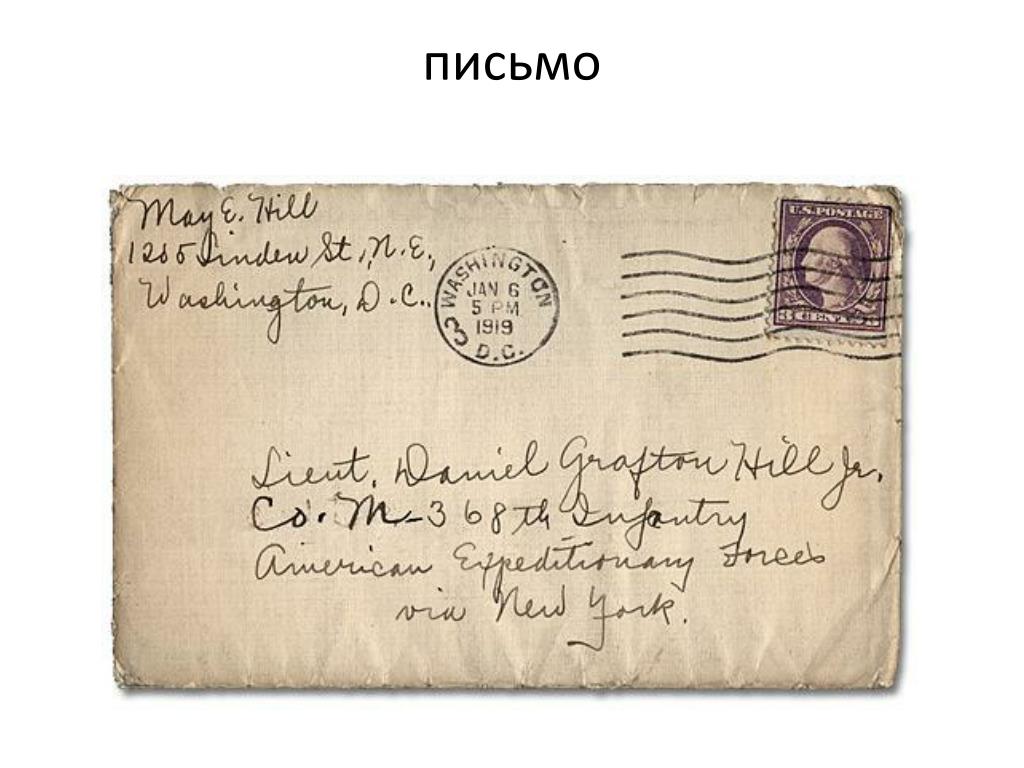 письмо
May E. Hill
1265 Linden St., N.E.,
Washington, D.C.
WASHINGTON
JAN 6
5 PM
1919
3
D.C.
U.S. POSTAGE
3 CENTS 3
Lieut. Daniel Grafton Hill Jr.
Co. M-368th Infantry
American Expeditionary Forces
via New York.